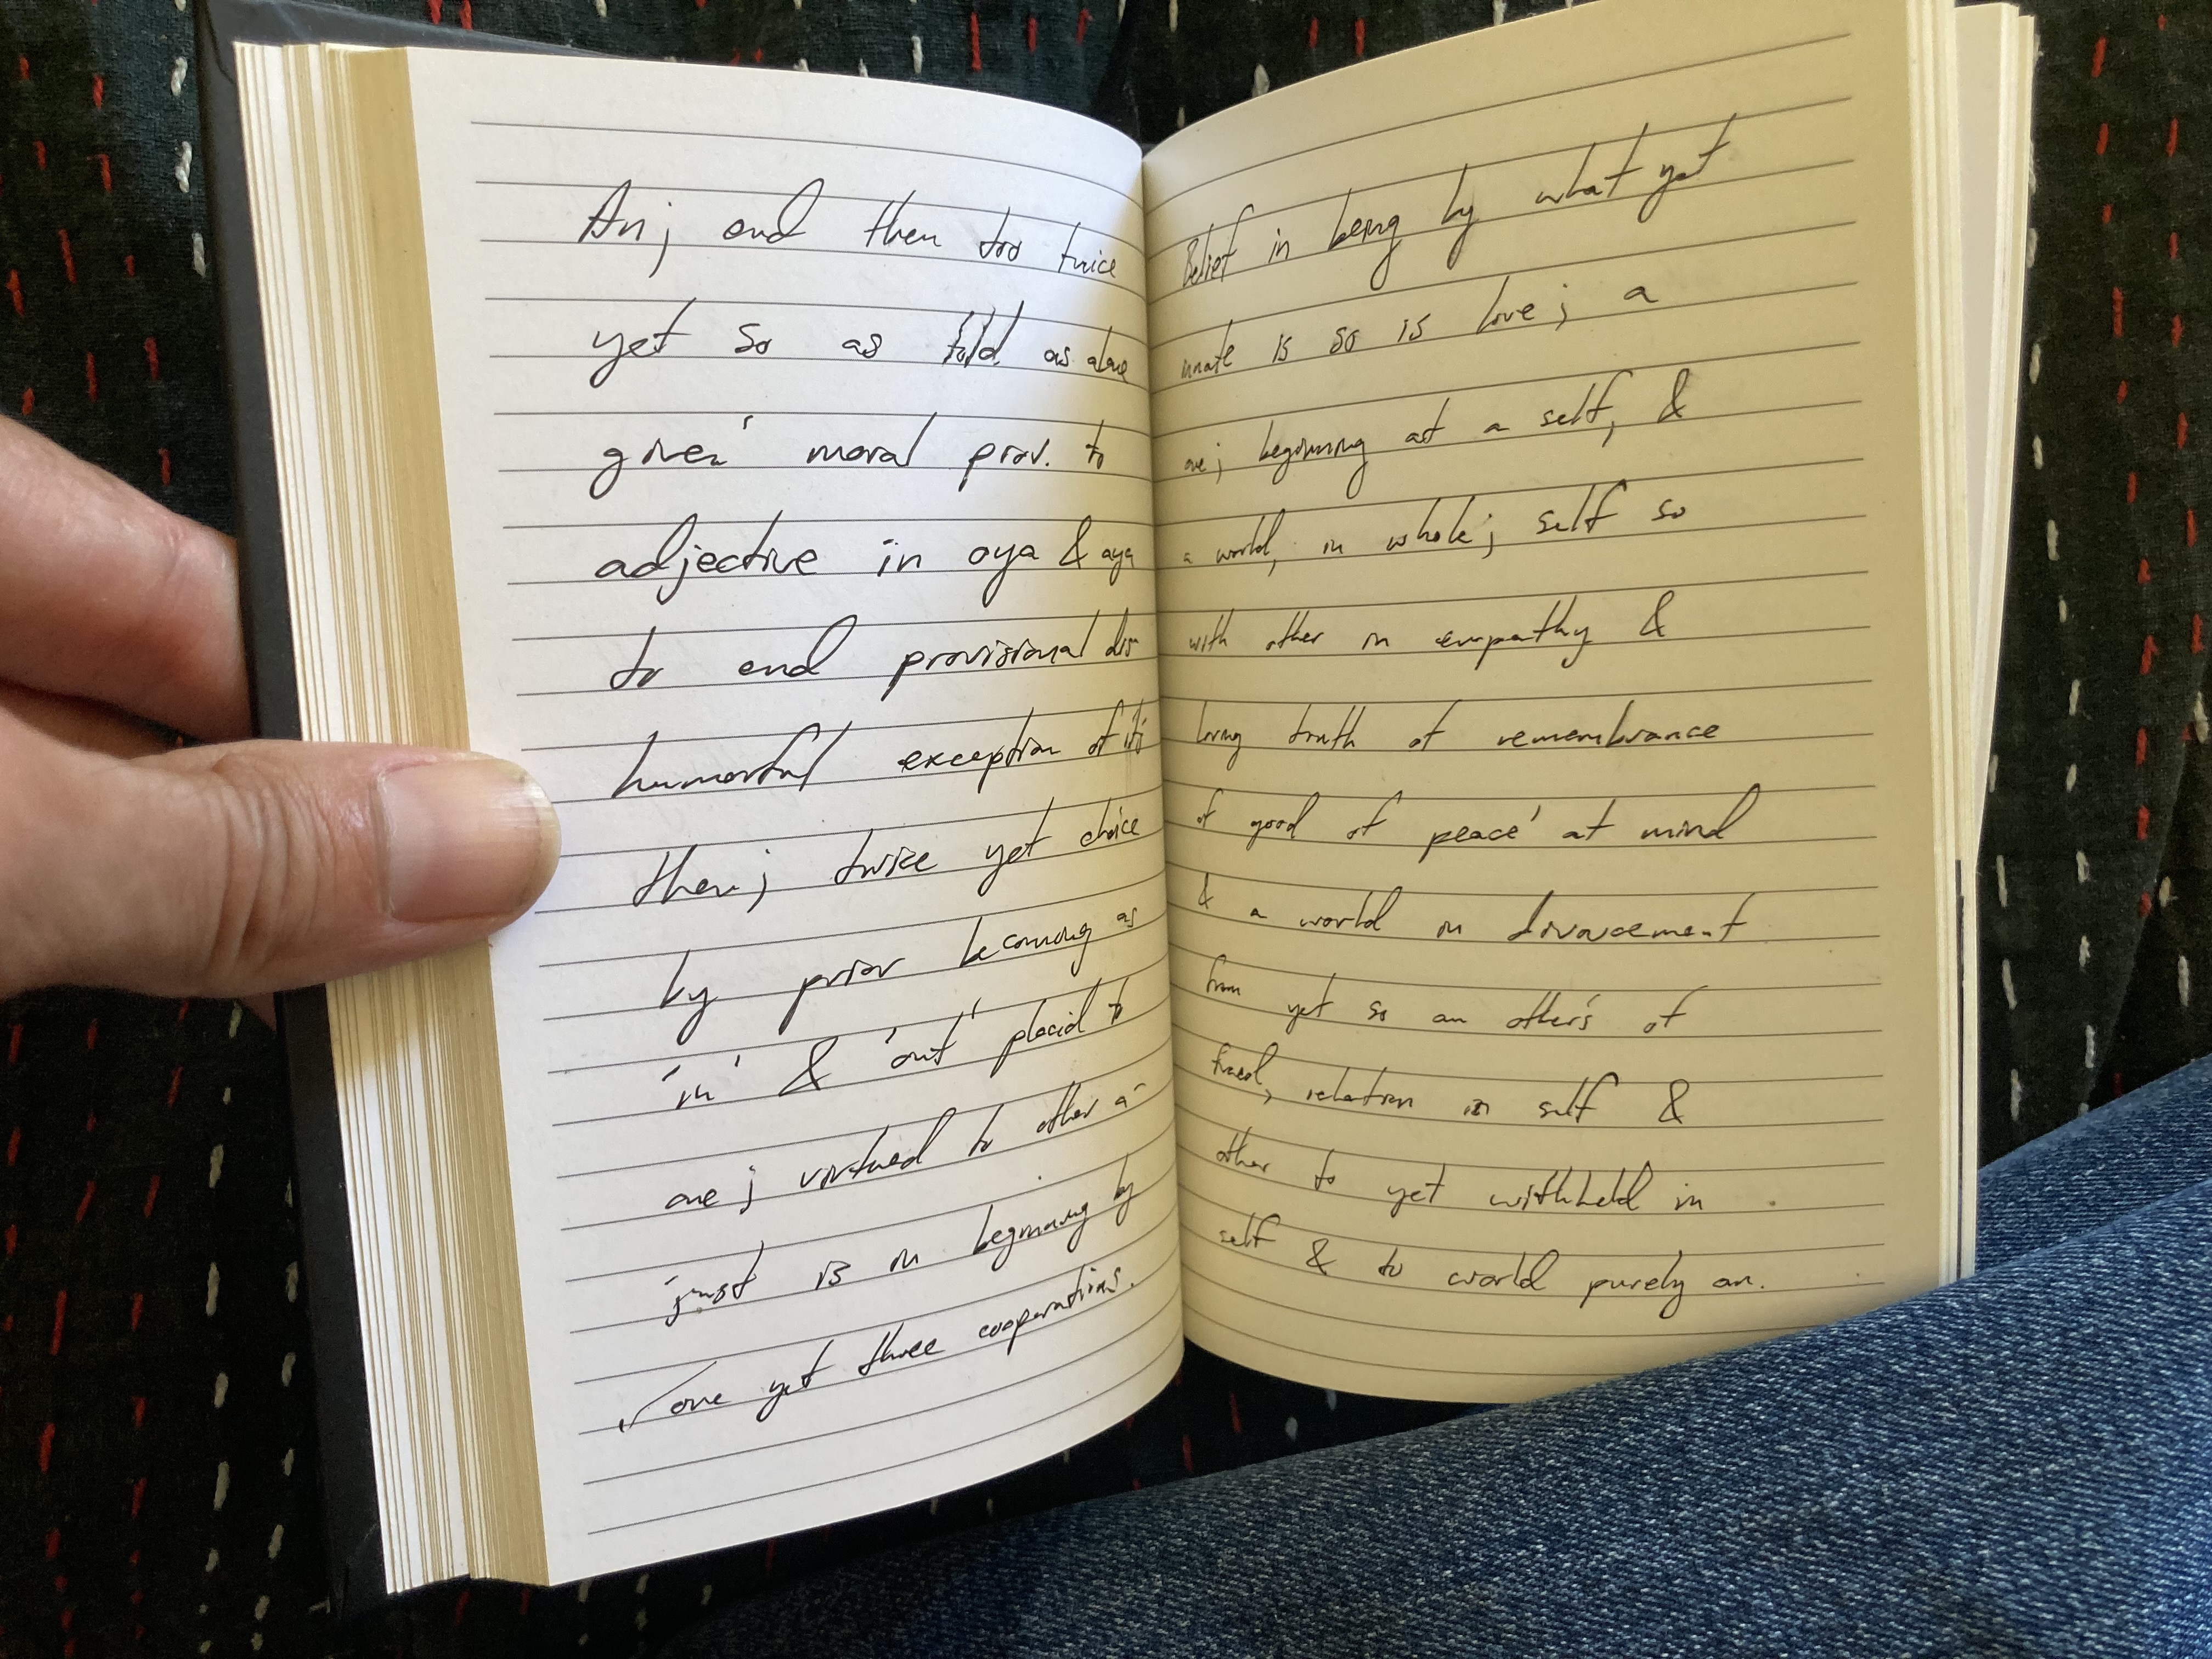 An; and then too twice
yet so as told as alone
given' moral prov. to
adjective in aya & aya
to end provisional dis
humorful exception of its
then; twice yet choice
by prior becoming as
'in' & 'out' placid to
one; virtued to other a-
just is in beginning by
one yet three cooperations.
Belief in being by what yet
innate is so is love; a
one; beginning at a self, &
a world, in whole; self so
with other in empathy &
loving truth of remembrance
of good of peace' at mind
& a world in divorcement
from yet so an other's of
relation in self &
other to yet withheld in
self & to world purely an.